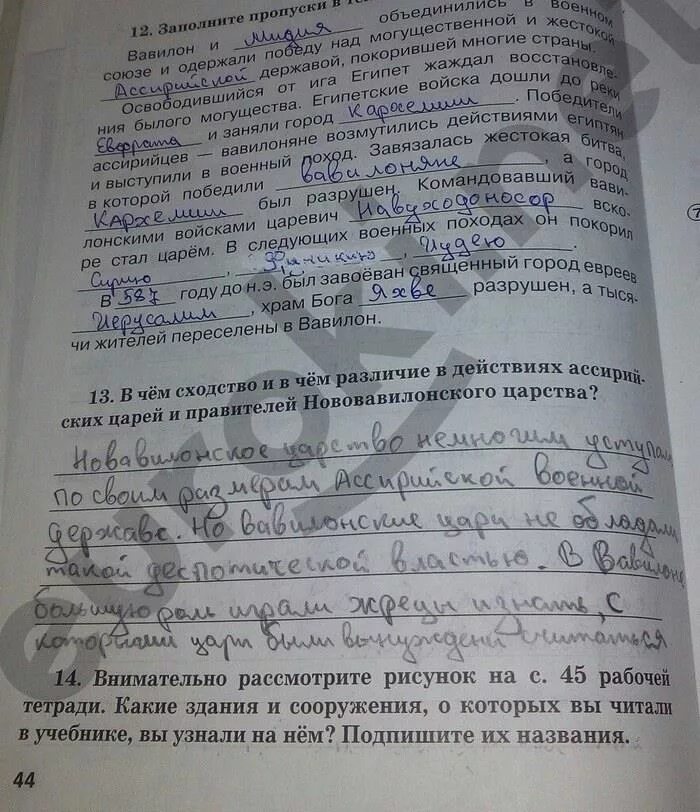 12. Заполните пропуски в те
Вавилон и Мидия объединились в военном
союзе и одержали победу над могущественной и жестокой
Ассирийской державой, покорившей многие страны.
Освободившийся от ига Египет жаждал восстановле-
ния былого могущества. Египетские войска дошли до реки
Евфрата и заняли город Кархемиш. Победители
ассирийцев — вавилоняне возмутились действиями египтян
и выступили в военный поход. Завязалась жестокая битва,
в которой победили вавилоняне, а город
Кархемиш был разрушен. Командовавший вави-
лонскими войсками царевич Навуходоносор вско-
ре стал царём. В следующих военных походах он покорил
Сирию, Финикию, Иудею.
В 587 году до н.э. был завоёван священный город евреев
Иерусалим, храм Бога Яхве разрушен, а тыся-
чи жителей переселены в Вавилон.
13. В чём сходство и в чём различие в действиях ассирий-
ских царей и правителей Нововавилонского царства?
Новавилонское царство немногим уступал
по своим размерам Ассирийской военной
державе. Но вавилонские цари не обладали
такой деспотической властью. В Вавилоне
большую роль играли жрецы и знать, с
которыми цари были вынуждены считаться
14. Внимательно рассмотрите рисунок на с. 45 рабочей
тетради. Какие здания и сооружения, о которых вы читали
в учебнике, вы узнали на нём? Подпишите их названия.
44
euroki.net